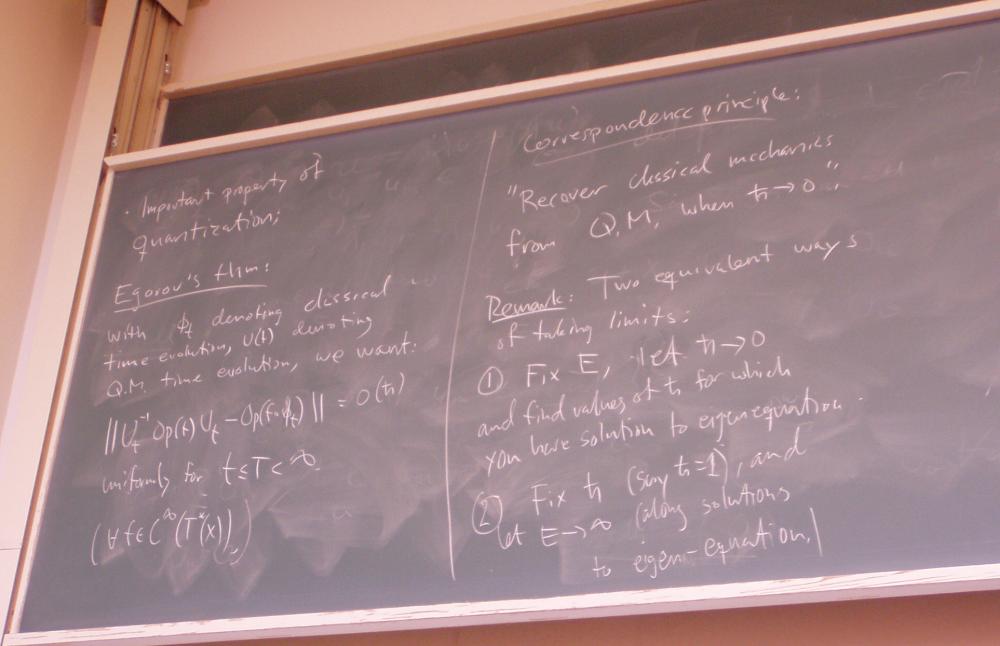 · Important property of
quantization:
Egorov's thm:
with ϕₜ denoting classical
time evolution, U(t) denoting
Q.M. time evolution, we want:
||Uₜ⁻¹ Op(f) Uₜ - Op(f∘ϕₜ)|| = O(ħ)
uniformly for t ≤ T < ∞
(∀ f ∈ C^∞(T*(X)))
Correspondence principle:
"Recover classical mechanics
from Q.M. when ħ → 0."
Remark: Two equivalent ways
of taking limits:
① Fix E, let ħ → 0
and find values of ħ for which
you have solution to eigenequation.
② Fix ħ (say ħ=1), and
let E → ∞ (along solutions
to eigen-equation.)